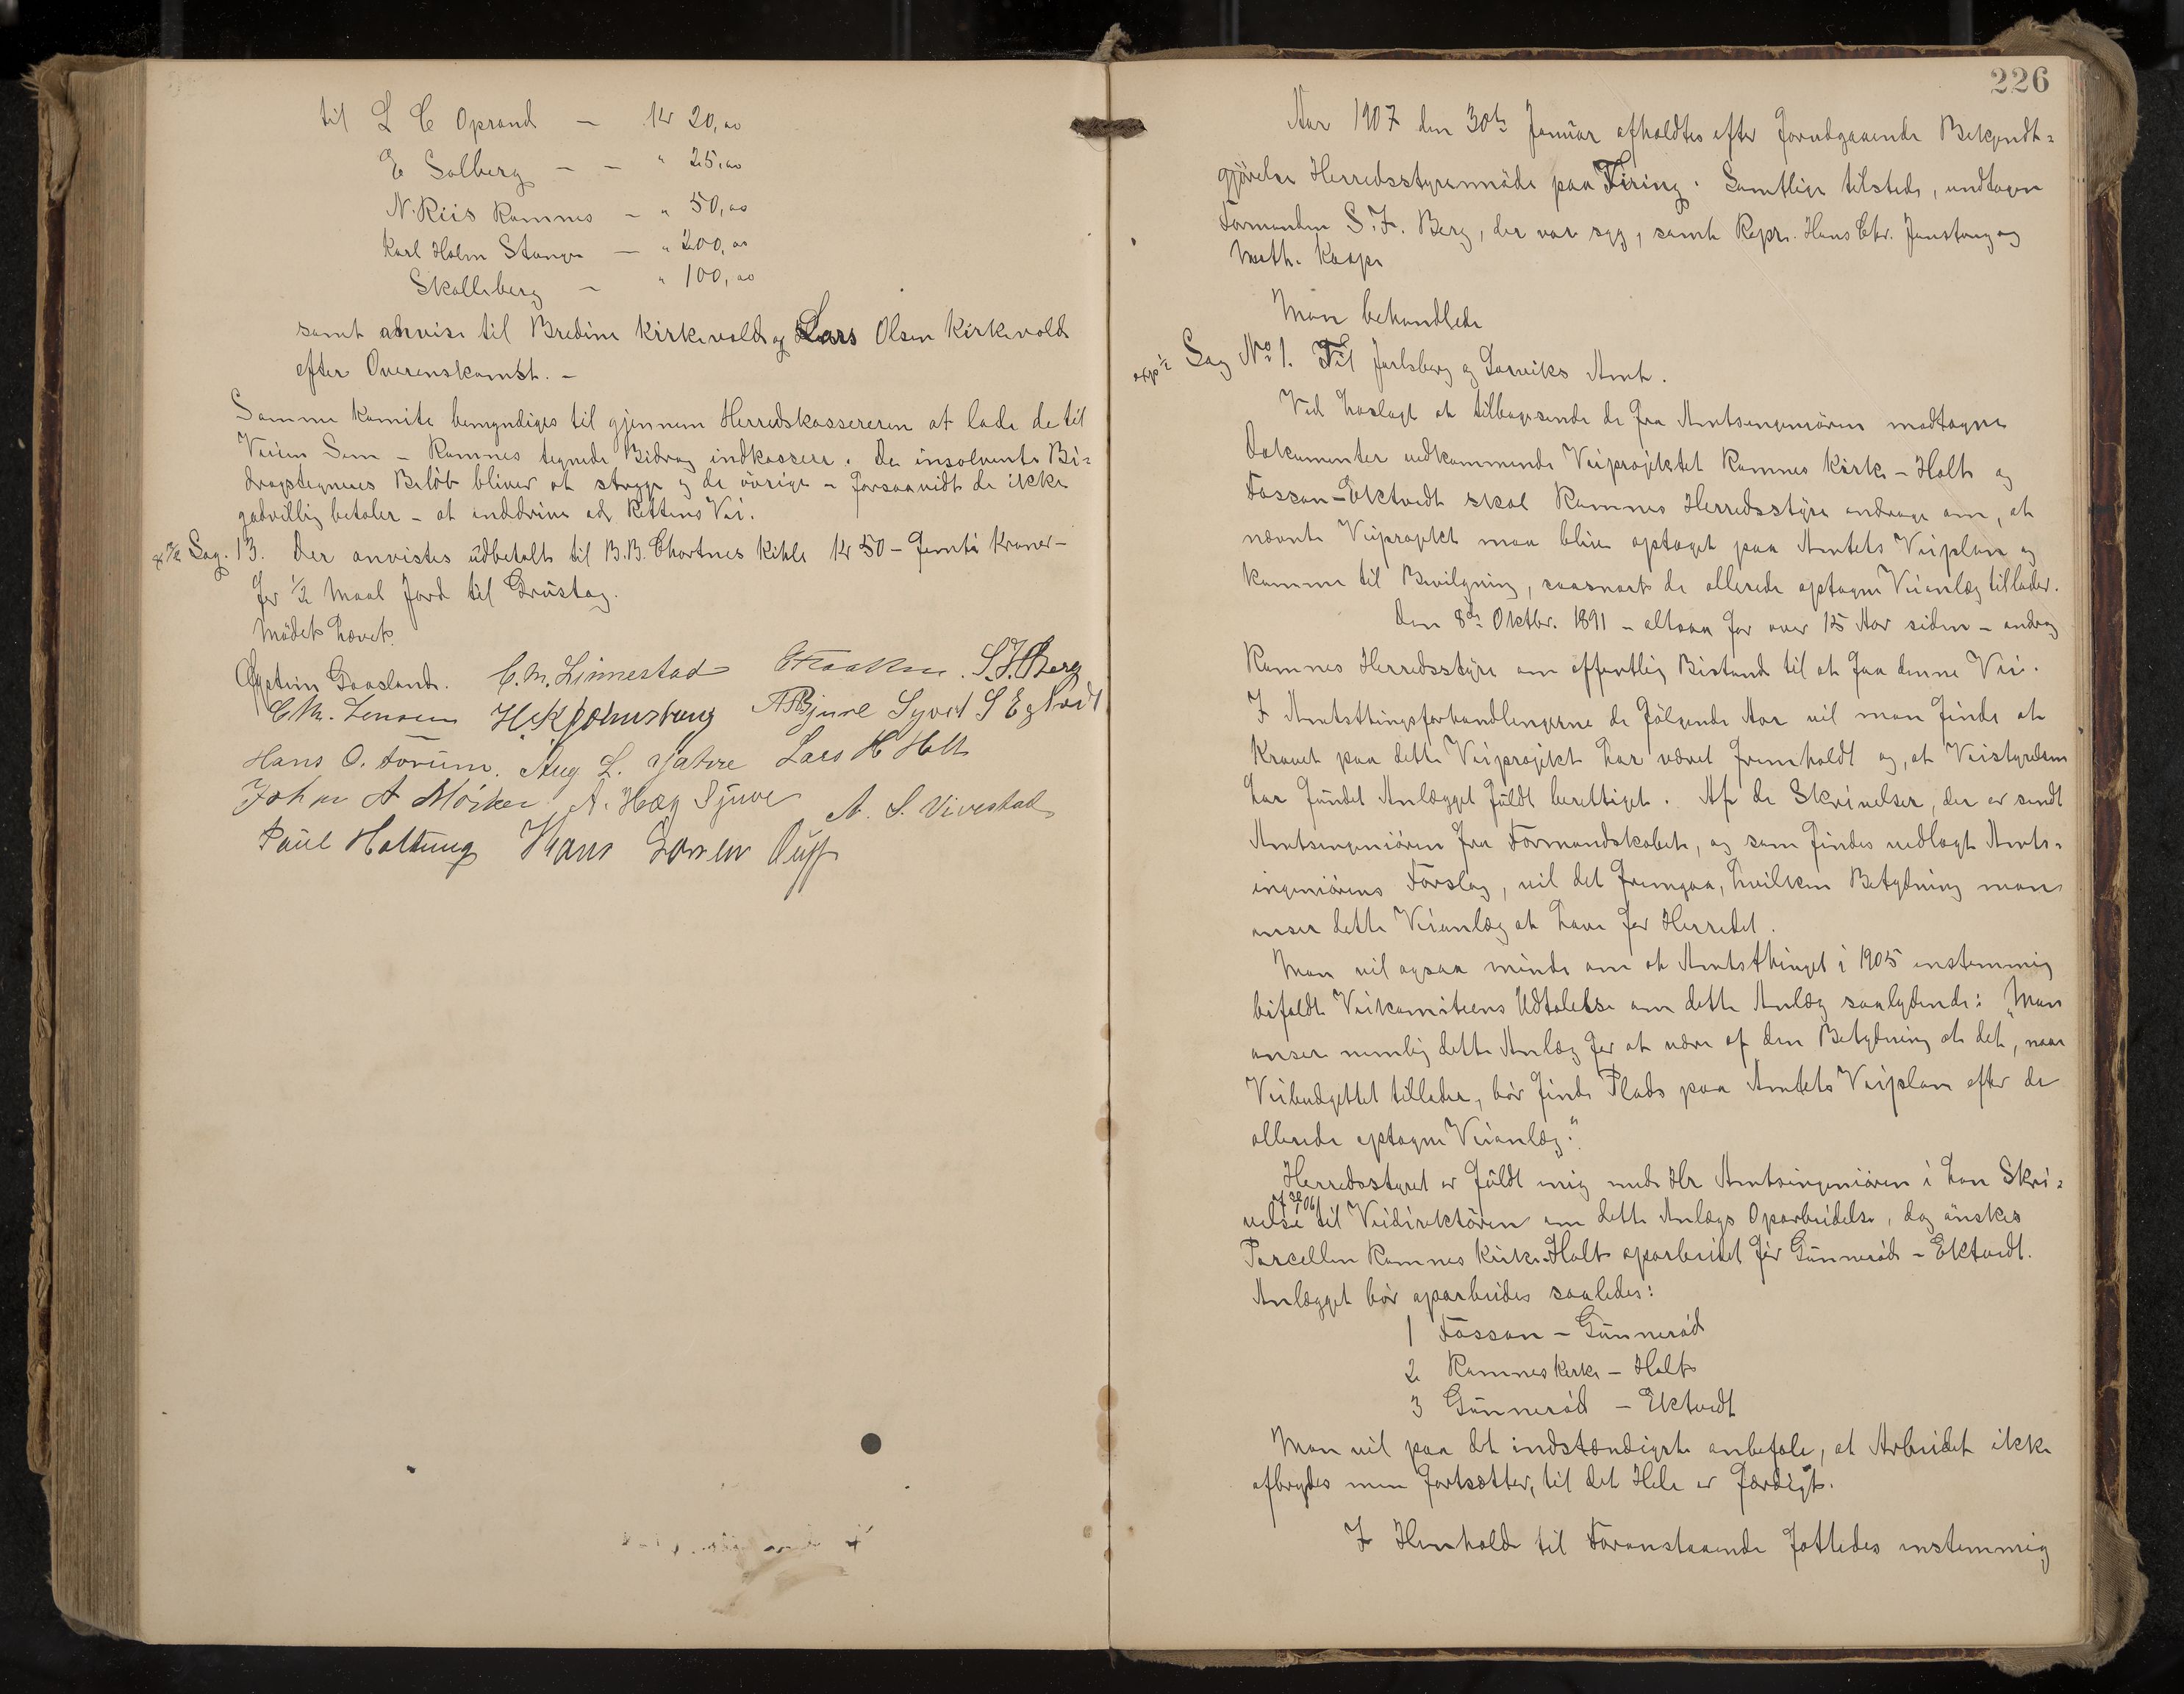 til L C Oprand — Kr 20,00
E Solberg — — " 25,00
N. Riis Ramnes — " 50,00
Karl Holm Stange — " 200,00
Skalleberg — " 100,00
samt anvise til Bredine Kirkevold og Lars Olsen Kirkevold
efter Overenskomst. —
Samme Komite bemyndiges til gjennem Herredskassereren at lade de til
Veien Sem — Ramnes tegnede Bidrag indkassere. De insolvente Bi-
dragstegneres Beløb bliver at stryge og de øvrige — forsaavidt de ikke
godvillig betaler — at inddrive ad Rettens Vei.
Sag. 13. Der anvistes udbetalt til B.B. Kihle Kr 50 — femti Kroner —
for 1/2 Maal Jord til Grustag.
Mødet hævet.
Øystein Gaasland. C. M. Linnestad S. F. Berg
Chr. Jensen A Bjune Syvert S Egtvedt
Hans O. Forum. Aug L. Jahre Lars H Holt
Johan A Mörken A. Hæg Sjuve A. S. Vivestad
Paul Holtung Hans
226
Aar 1907 den 30te Januar afholdtes efter forudgaaende Bekjendt-
gjörelse Herredsstyremöde paa Firing. Samtlige tilstede, undtagen
Formanden S. F. Berg, der var syg, samt Repr. Hans Chr. og
Math. Kaape
Man behandlede
Sag No 1. Til Jarlsberg og Larviks Amt.
Ved hoslagt at tilbagesende de fra Amtsingeniören modtagne
Dokumenter vedkommende Veiprojektet Ramnes Kirke — Holt og
Fossan — Ektvedt skal Ramnes Herredsstyre andrage om, at
nævnte Veiprojekt maa blive optaget paa Amtets Veiplan og
komme til Bevilgning, saasnart de allerede optagne Veianlæg tillader.
Den 8de Oktbr. 1891 — altsaa for over 15 Aar siden — androg
Ramnes Herredsstyre om offentlig Bistand til at faa denne Vei.
I Amtsthingsforhandlingerne de fölgende Aar vil man finde at
Kravet paa dette Veiprojekt har været fremholdt og, at Veistyrelsen
har fundet Anlægget fuldt berettiget. Af de Skrivelser, der er sendt
Amtsingeniören fra Formandskabet, og som findes vedlagt Amts-
ingeniörens Forslag, vil det fremgaa, hvilken Betydning man
anser dette Veianlæg at have for Herredet.
Man vil ogsaa minde om at Amtsthinget i 1905 enstemmig
bifaldt Veikomiteens Udtalelse om dette Anlæg saalydende: „Man
anser nemlig dette Anlæg for at være af den Betydning at det, naar
Veibudgettet tillader, bör finde Plads paa Amtets Veiplan efter de
allerede optagne Veianlæg."
Herredsstyret er fuldt enig med Hr Amtsingeniören i hans Skri-
velse til Veidirektören om dette Anlægs Oparbeidelse, dog önskes
Parcellen Ramnes Kirke — Holt oparbeidet för Gunneröd — Ektvedt.
Anlægget bör oparbeides saaledes:
1 Fossan — Gunneröd
2 Ramnes Kirke — Holt
3 Gunneröd — Ektvedt
Man vil paa det indstændigste anbefale, at Arbeidet ikke
afbrydes men fortsætter, til det Hele er færdigt.
I Henhold til Foranstaaende fattedes enstemmig